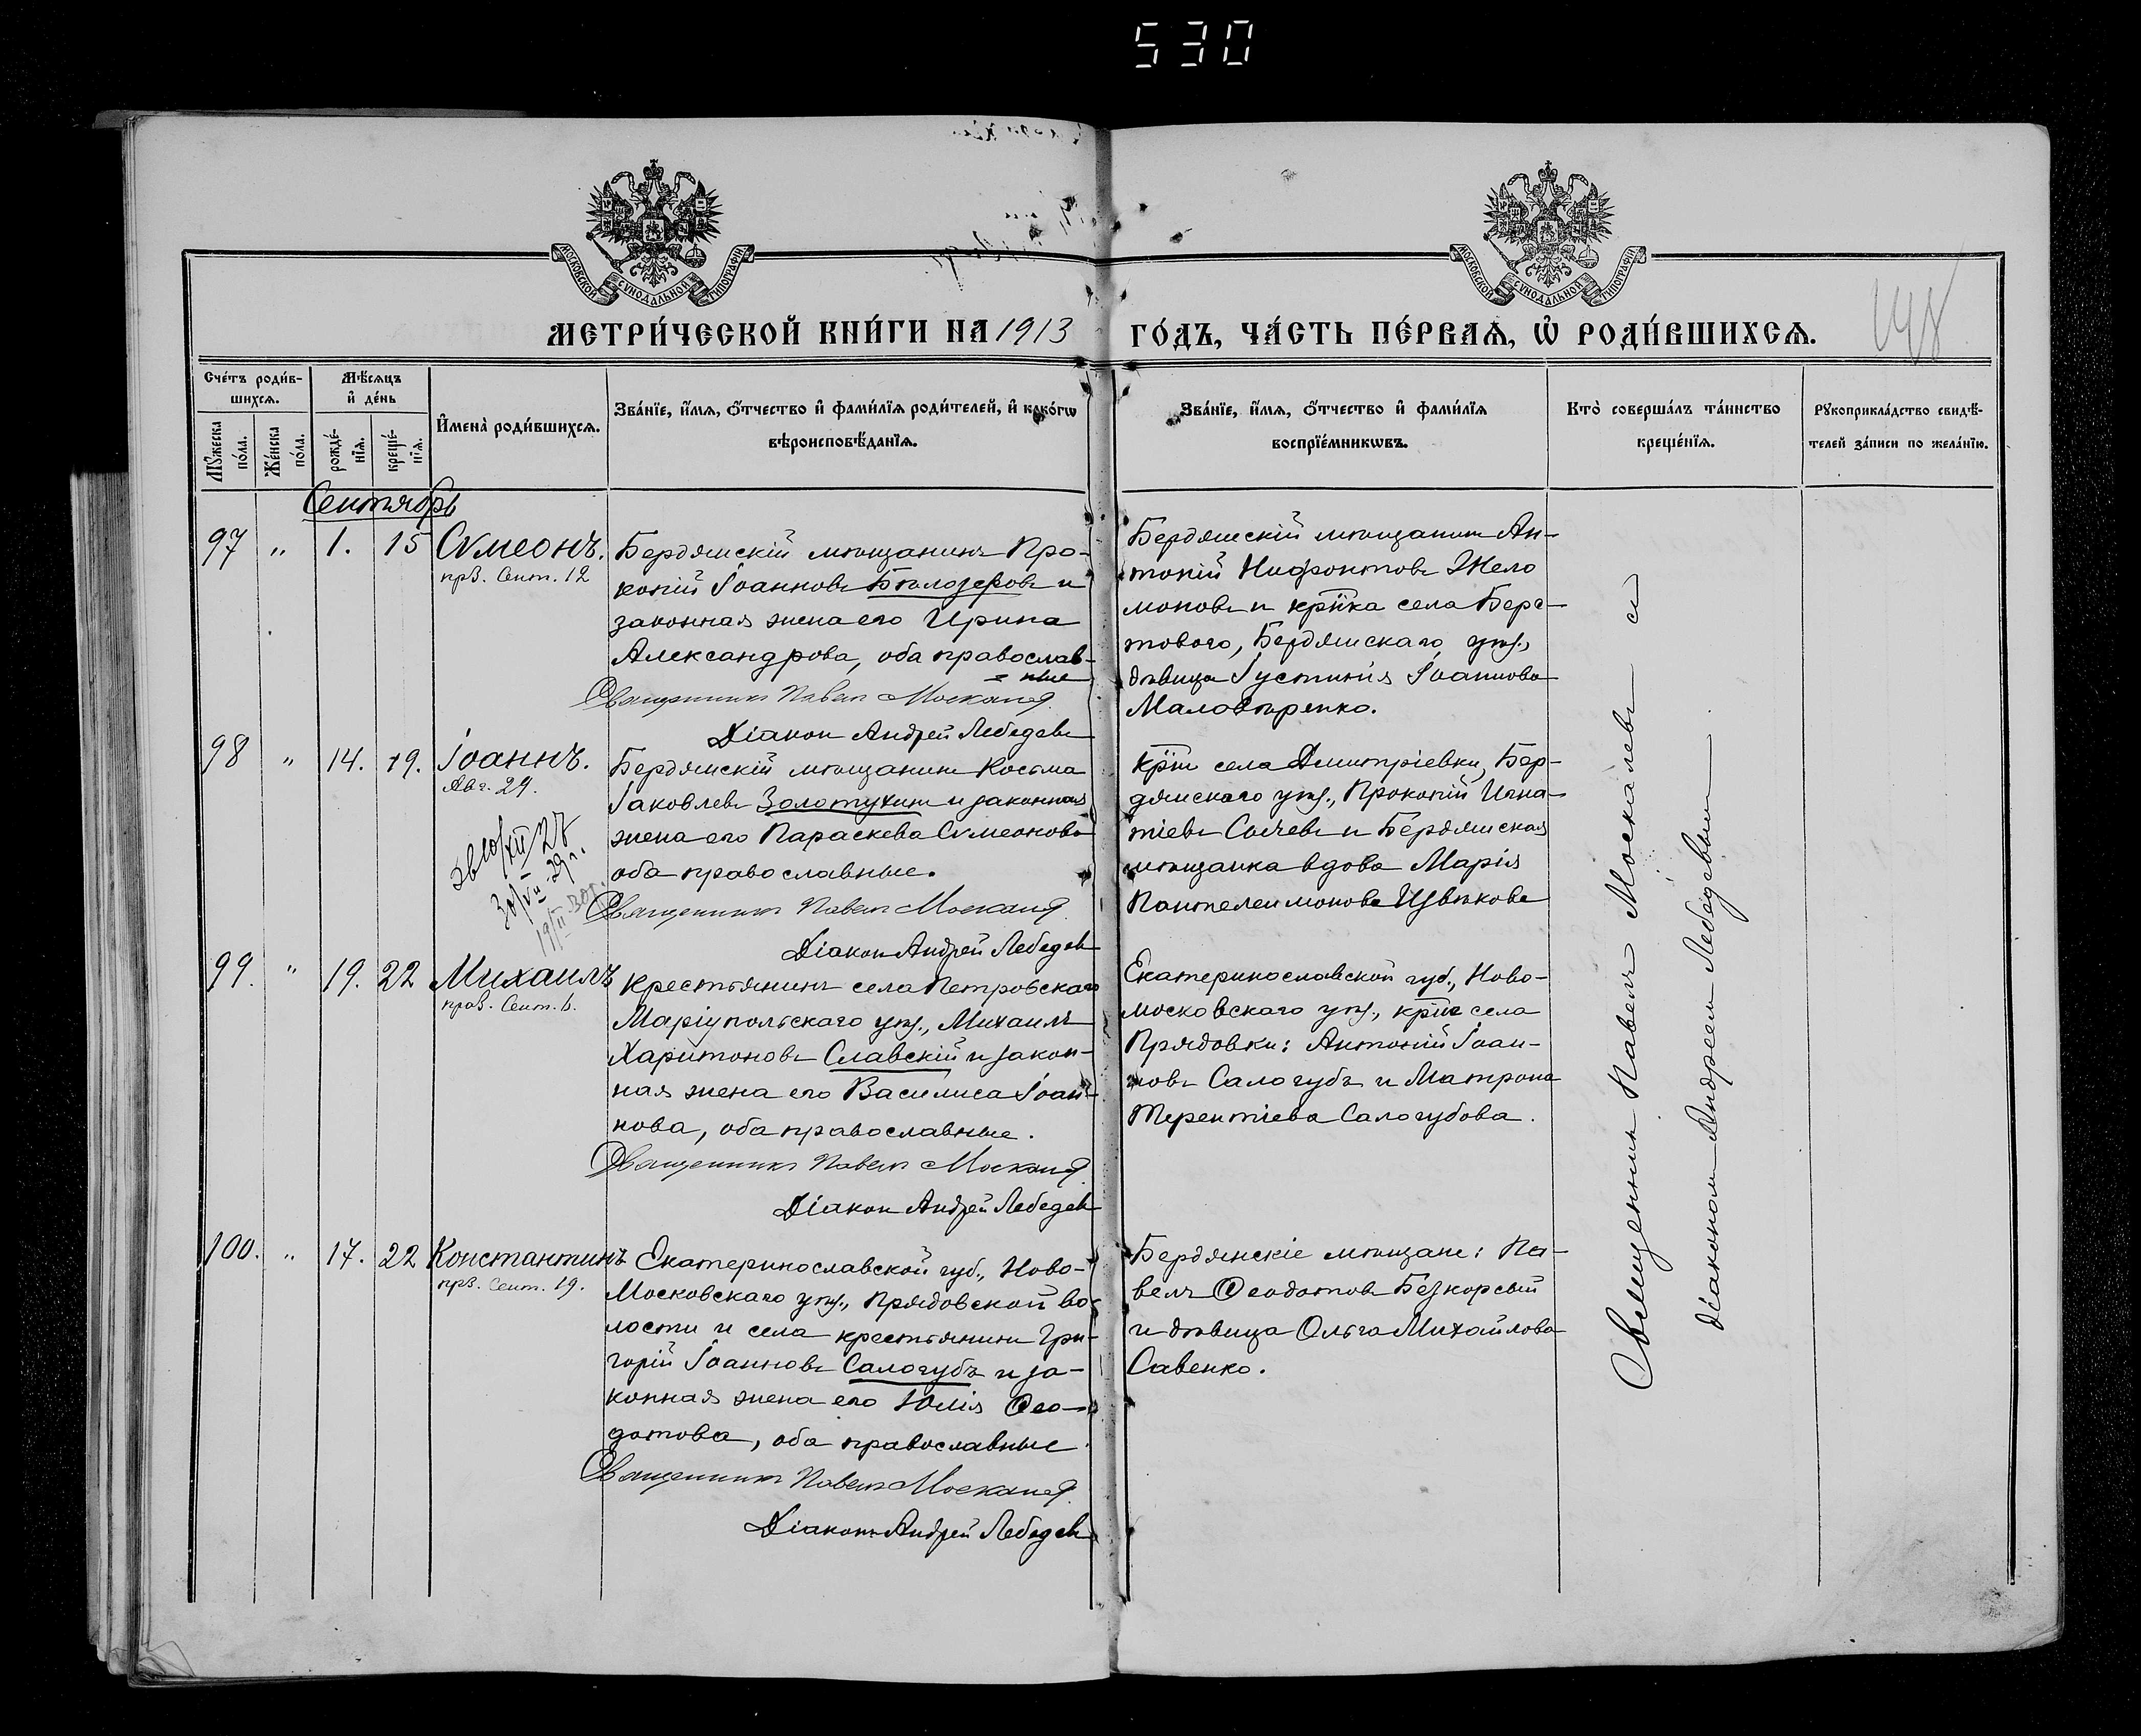 530
МОСКОВСКОЙ СѴНОДАЛЬНОЙ ТИПОГРАФІИ
МОСКОВСКОЙ СѴНОДАЛЬНОЙ ТИПОГРАФІИ
МЕТРИ́ЧЕСКОЙ КНИ́ГИ НА 1913 ГО́ДЪ, ЧА́СТЬ ПЕ́РВАѦ, Ѡ҆ РОДИ́ВШИХСѦ.
Сче́тъ роди́в-
шихсѧ.
Мѣ́сѧцъ
и҆ де́нь
Мꙋ́жеска
по́ла.
Же́нска
по́ла.
рожде́-
нїѧ.
креще́-
нїѧ.
И҆мена̀ роди́вшихсѧ.
Зва́нїе, и҆́мѧ, ѻ҆́тчество и҆ фами́лїѧ роди́телей, и҆ како́гѡ
вѣроисповѣ́данїѧ.
Зва́нїе, и҆́мѧ, ѻ҆́тчество и҆ фами́лїѧ
воспрїе́мникѡвъ.
Кто̀ соверша́лъ та́инство
креще́нїѧ.
Рꙋкоприкла́дство свидѣ́-
телей за́писи по жела́нїю.
Сентябрь
97 " 1. 15 Сѵмеонъ.
прв. Сент. 12
Бердянскій мѣщанинъ Про-
копій Іоанновъ Бѣлозеровъ и
законная жена его Ирина
Александрова, оба православ-
= ные
Священникъ Павелъ Москалев
Діакон Андрей Лебедевъ
Бердянскій мѣщанинъ Ан-
тоній Нифонтовъ Жело
моновъ и кр̅нка села Бере-
тового, Бердянскаго уѣз.,
дѣвица Іустинія Іоаннова
Маловѣренко.
98 " 14. 19. Іоаннъ.
Авг. 29.
Бердянскій мѣщанинъ Косьма
Іаковлевъ Золотухинъ и законная
жена его Параскева Сѵмеонова
оба православные.
Священникъ Павелъ Москалев
Діакон Андрей Лебедев
кр̅нъ села Димитріевки, Бер-
дянскаго уѣз., Прокопій Игна-
тіевъ Сычевъ и Бердянская
мѣщанка вдова Марія
Пантелеимонова Цвѣткова
99. " 19. 22 Михаилъ
прав. Сент. 6.
Крестьянинъ села Петровскаго
Маріупольскаго уѣз., Михаилъ
Харитоновъ Славскій и закон-
ная жена его Василиса Іоан-
нова, оба православные.
Священникъ Павелъ Москалев
Діакон Андрей Лебедев
Екатеринославской губ., Ново-
московскаго уѣз., кр̅не села
Прядовки: Антоній Іоан-
новъ Салогубъ и Матрона
Терентіева Салогубова.
100. " 17. 22 Константинъ
прв. Сент. 19.
Екатеринославской губ., Ново-
Московскаго уѣз., Прядовской во-
лости и села крестьянинъ Гри-
горій Іоанновъ Салогубъ и за-
конная жена его Юлія Ѳео-
дотова, оба православные.
Священникъ Павелъ Москалев
Діаконъ Андрей Лебедев
Бердянскіе мѣщане: Па-
велъ Ѳеодотовъ Безкорсый
и дѣвица Ольга Михайлова
Савенко.
Священникъ Павелъ Москалевъ съ
діакономъ Андреемъ Лебедевымъ.